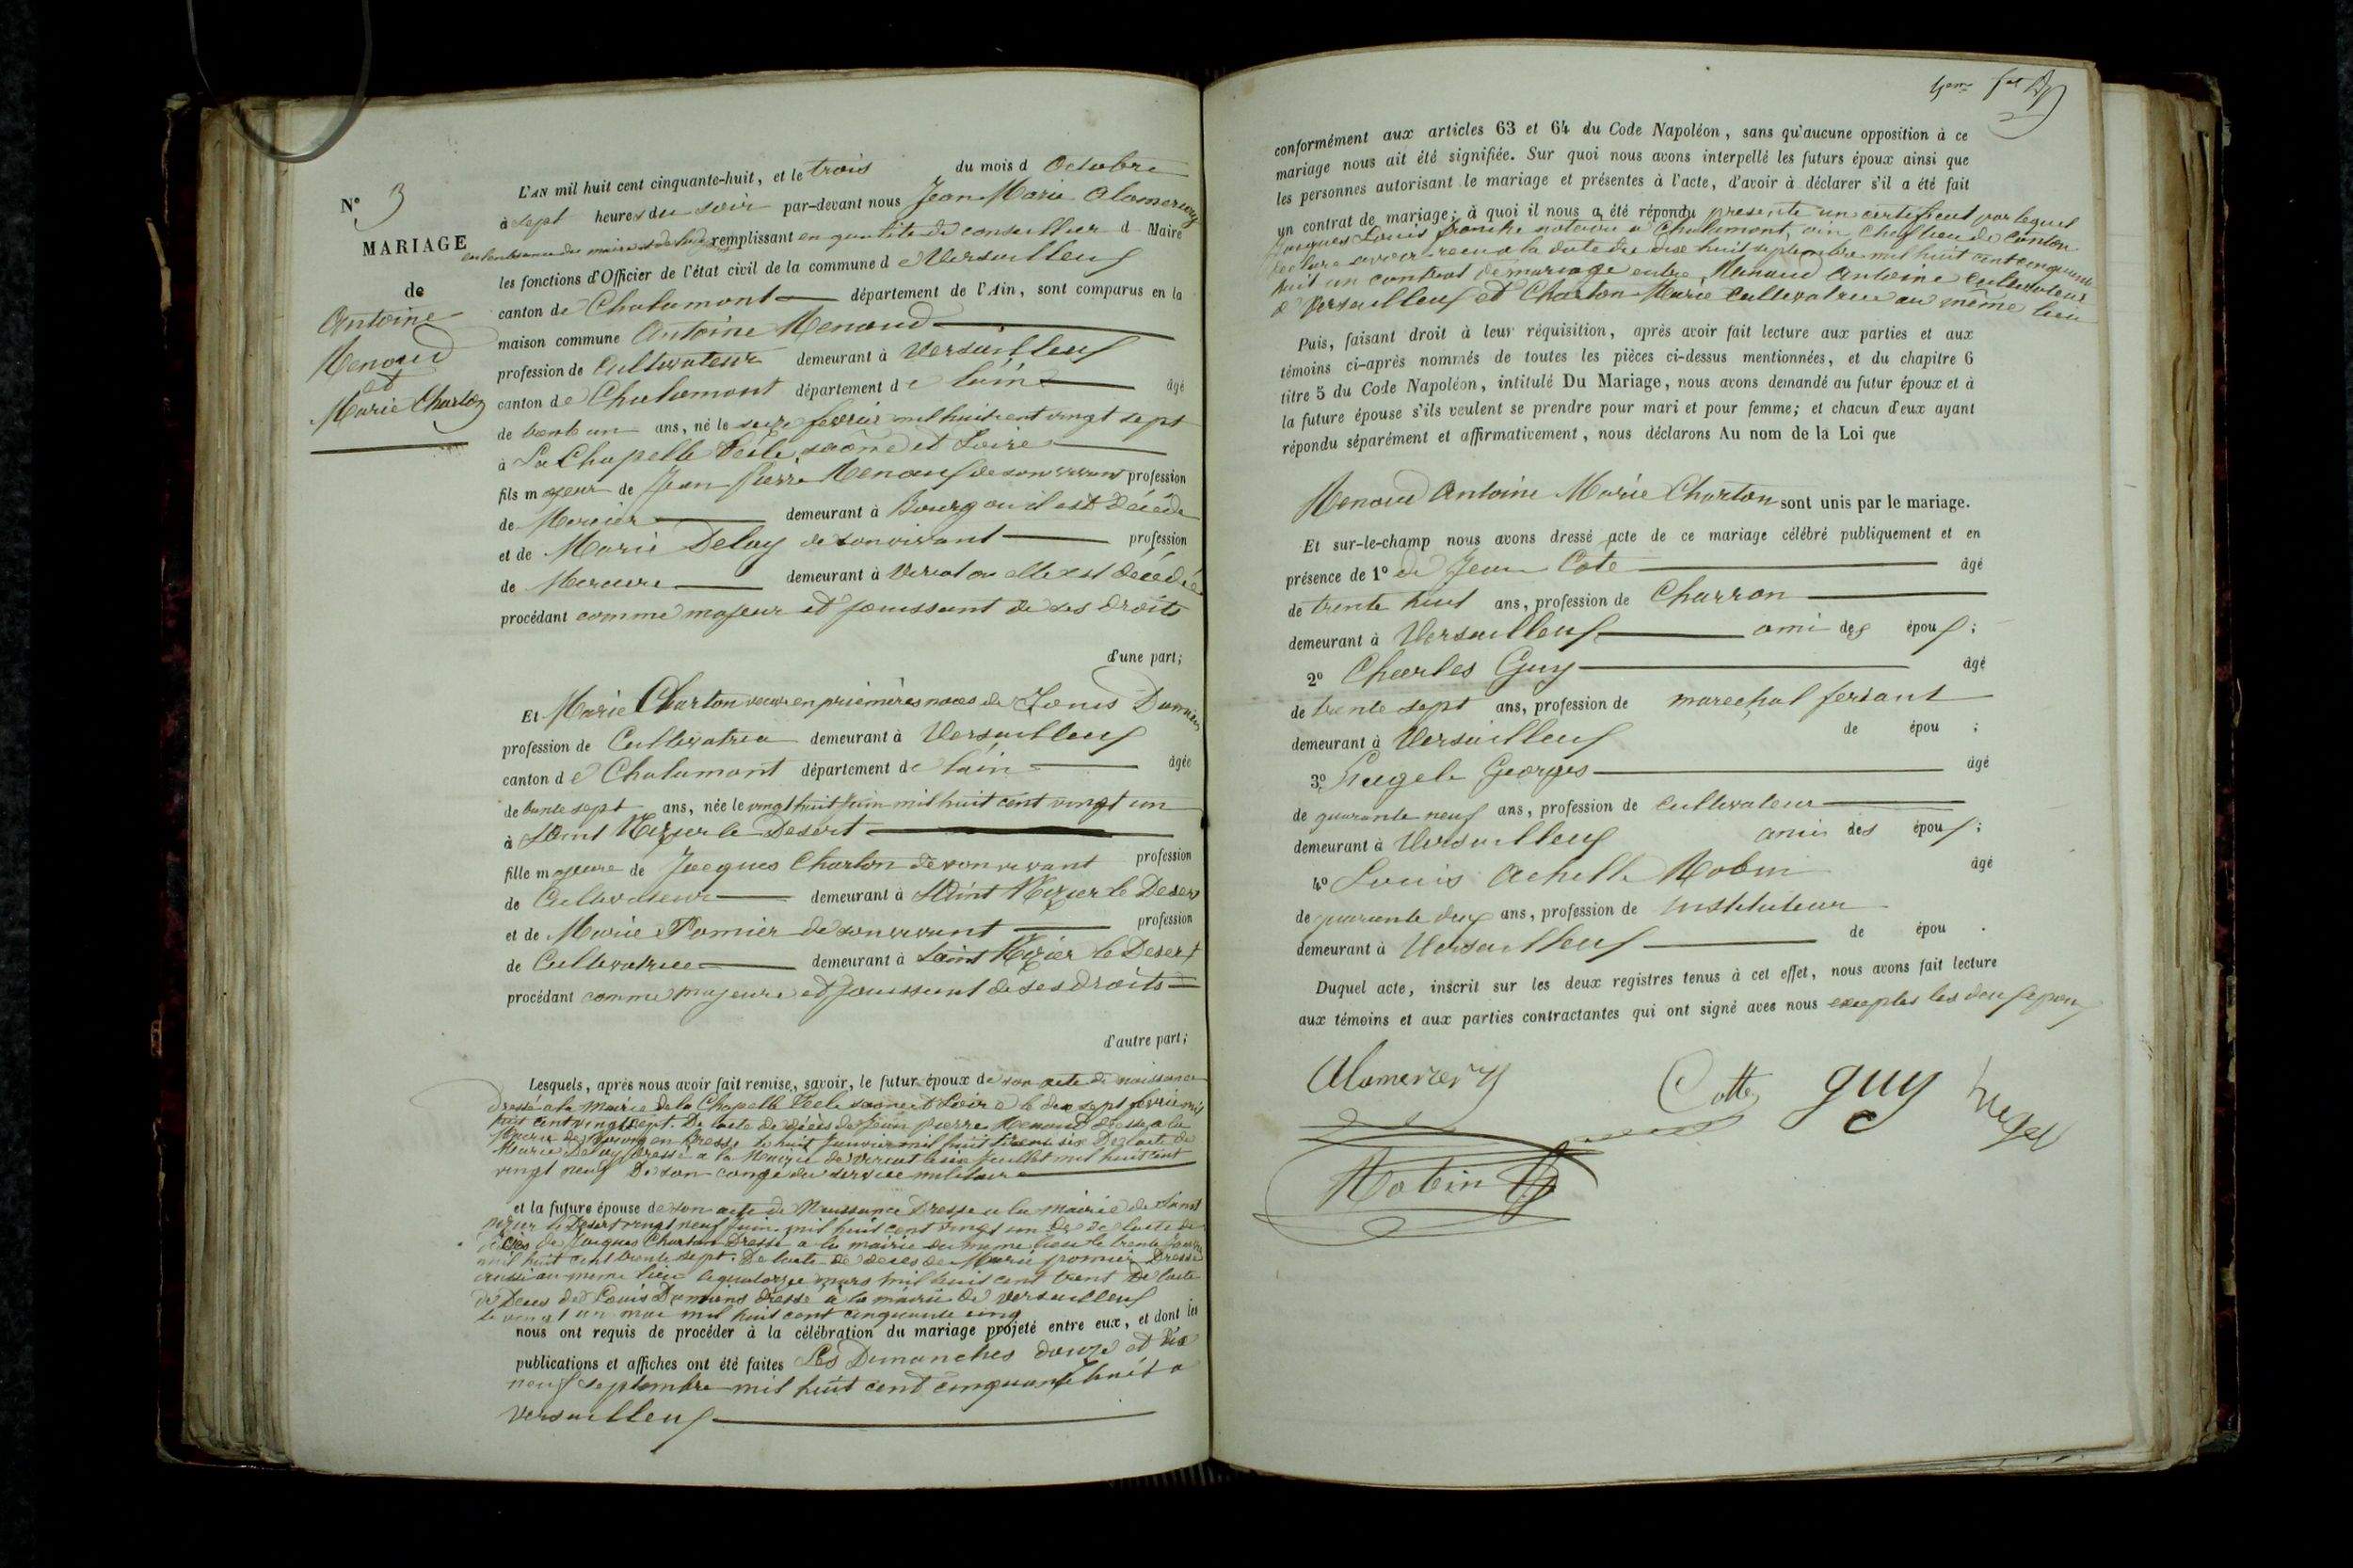 N° 3
MARIAGE
de
Antoine
Renoud
et
Marie Charton
L'AN mil huit cent cinquante-huit, et le trois du mois d Octobre
à sept heures du soir par-devant nous Jean Marie Alamercery
en l'absence du maire et de remplissant en quatité de conseillier d Maire
les fonctions d'Officier de l'état civil de la commune d e Versailleux
canton de Chalamont département de l'Ain, sont comparus en la
maison commune Antoine Renoud
profession de Cultivateur demeurant à Versailleux
canton de Chalamont département de lain âgé
de trente un ans, né le seize fevrier mil huit cent vingt sept
à La Chapelle Tècle saône et Loire
fils majeur de Jean Pierre Renoud de son vivant profession
de Mercier demeurant à Bourg ou il est décédé
et de Marie Delay de son vivant profession
de Merciere demeurant à Viriat ou elle est décédée
procédant comme majeur et jouissant de ses droits
d'une part;
Et Marie Charton veuve en priemères noces de Louis Damians
profession de Cultivatrice demeurant à Versailleux
canton de Chalamont département de lain âgée
de trente sept ans, née le vingt huit juin mil huit cent vingt un
à Saint Nizier le Desert
fille majeure de Jacques Charton de son vivant profession
de Cultivateur demeurant à Saint Nizier le Desert
et de Marie Pomier de son vivant profession
de Cultivatrice demeurant à Saint Nizier le Desert
procédant comme majeure et jouissant de ses droits
d'autre part;
Lesquels, après nous avoir fait remise, savoir, le futur époux de son acte de naissance
dressé a la Mairie de la Chapelle Tècle saone et Loire le dix sept fevrier mil
huit cent vingt sept. De l'acte de décès de Jean pierre Renoud dressé a la
Mairie de Bourg en Bresse le huit Janvier mil huit trente six De l'acte de
Marie Delay dressé a la Mairie de Viriat le six Juillet mil huit cent
vingt neuf De son congé du service militaire
et la future épouse de son acte de Naissance Dressé a la mairie de Saint
Nizier le Desert vingt neuf Juin mil huit cent vingt un De de lacte de
décès de Jacques Charton dressé a la mairie du meme lieu le trente
mil huit cent trente sept. De lacte de deces de Marie pomier Dressé
aussi au meme lieu le quatorze mars mil huit cent trent De lacte
de Deces de Louis Damians dressé à la mairie de Versailleux
le vingt un mai mil huit cent cinquante cinq
nous ont requis de procéder à la célébration du mariage projeté entre eux, et dont les
publications et affiches ont été faites Les Dimanches douze et dix
neuf septembre mil huit cent cinquante huit a
Versailleux
conformément aux articles 63 et 64 du Code Napoléon, sans qu'aucune opposition à ce
mariage nous ait été signifiée. Sur quoi nous avons interpellé les futurs époux ainsi que
les personnes autorisant le mariage et présentes à l'acte, d'avoir à déclarer s'il a été fait
un contrat de mariage; à quoi il nous a été répondu presente un certificat par lequel
Jacques Louis franche notaire a Chalamont, ain, Chef lieu de Canton
declare avoir recu a la date du dix huit septembre mil huit cent cinquante
huit un contrat de mariage entre Renaud Antoine Cultivateur
a Versailleux et Charton Marie Cultivatrice au même lieu
Puis, faisant droit à leur réquisition, après avoir fait lecture aux parties et aux
témoins ci-après nommés de toutes les pièces ci-dessus mentionnées, et du chapitre 6
titre 5 du Code Napoléon, intitulé Du Mariage, nous avons demandé au futur époux et à
la future épouse s'ils veulent se prendre pour mari et pour femme; et chacun d'eux ayant
répondu séparément et affirmativement, nous déclarons Au nom de la Loi que
Renoud Antoine Marie Charton sont unis par le mariage.
Et sur-le-champ nous avons dressé acte de ce mariage célébré publiquement et en
présence de 1° de Jean Cote âgé
de trente huit ans, profession de Charron
demeurant à Versailleux ami des époux;
2° Charles Guy âgé
de trente sept ans, profession de marechal feriant
demeurant à Versailleux de épou ;
3° Georges âgé
de quarante neuf ans, profession de cultivateur
demeurant à Versailleux ami des époux;
4° Louis Achille Robin âgé
de quarante deux ans, profession de instituteur
demeurant à Versailleux de épou .
Duquel acte, inscrit sur les deux registres tenus à cet effet, nous avons fait lecture
aux témoins et aux parties contractantes qui ont signé avec nous exceptes les deux epoux
Alamercery
Cotte
guy
Robin